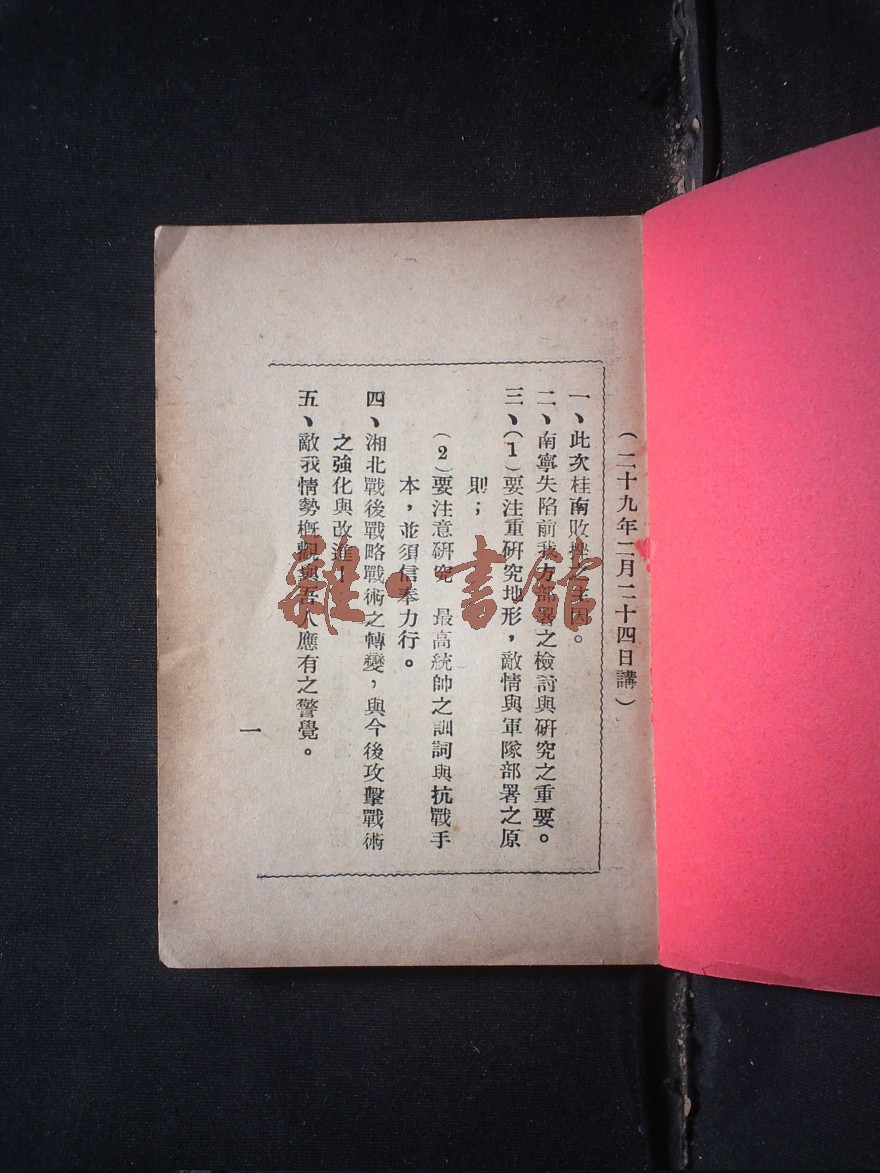 (二十九年二月二十四日講)
一、此次桂南敗挫之主因。
二、南寧失陷前我方部署之檢討與研究之重要。
三、(1)要注重研究地形，敵情與軍隊部署之原
則；
(2)要注意研究 最高統帥之訓詞與抗戰手
本，並須信奉力行。
四、湘北戰後戰略戰術之轉變，與今後攻擊戰術
之強化與改進！
五、敵我情勢概觀與吾人應有之警覺。
一
雜·書館